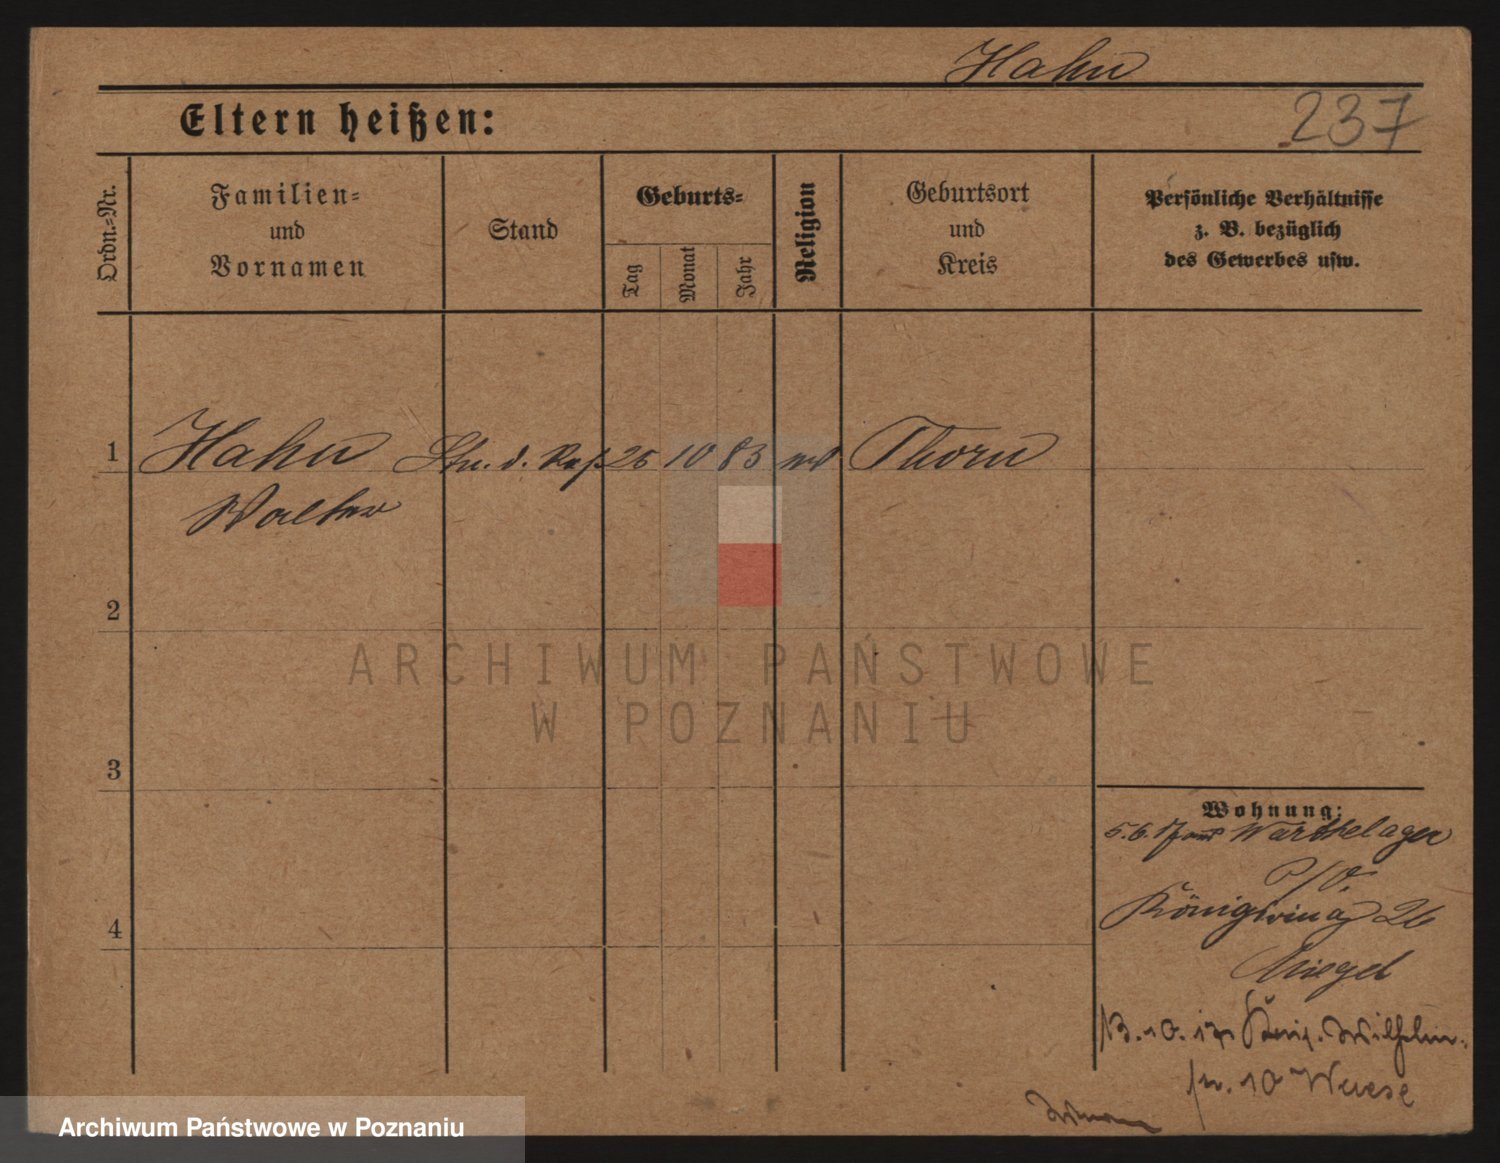 Hahn
Eltern heißen:
237
Ordn.-Nr.
Familien-
und
Vornamen
Stand
Geburts-
Tag
Monat
Jahr
Religion
Geburtsort
und
Kreis
Persönliche Verhältnisse
z. B. bezüglich
des Gewerbes usw.
1
Hahn
d.
25
10
83
Thorn
Walter
2
ARCHIWUM PAŃSTWOWE
W POZNANIU
3
Wohnung:
5.6.17 Warthelager
Königsring 26
4
13.10.17 Wilhelm-
10
Archiwum Państwowe w Poznaniu